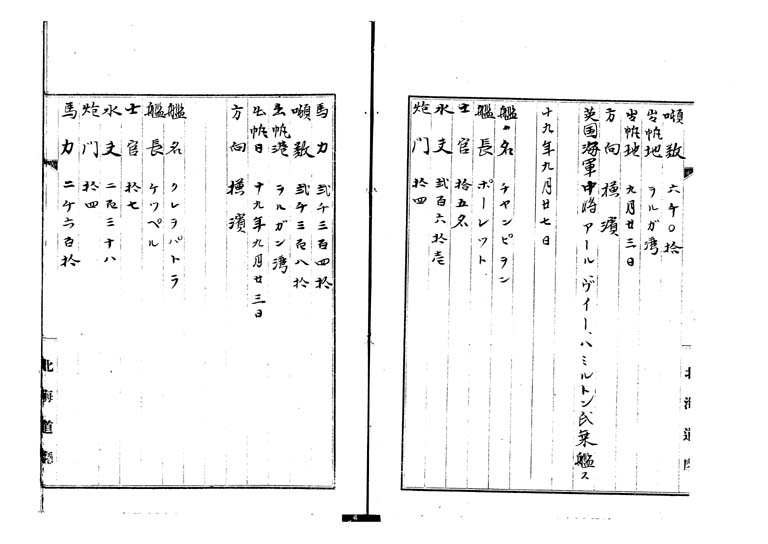 噸数 六千〇拾
出帆地 ヲルガ湾
出帆地 九月廿三日
方向 横濱
英国海軍中将アール、ヴイー、ハミルトン氏乗艦ス
十九年九月廿七日
艦名 チヤンピヲン
艦長 ポーレツト
士官 拾五名
水夫 弐百六拾壱
炮門 拾四
北海道庁
馬力 弐千三百四拾
噸数 弐千三百八拾
出帆港 ヲルガン湾
出帆日 十九年九月廿三日
方向 横濱
艦名 クレヲパトラ
艦長 ケツペル
士官 拾七
水夫 二百三十八
炮門 拾四
馬力 二千六百拾
北海道廳